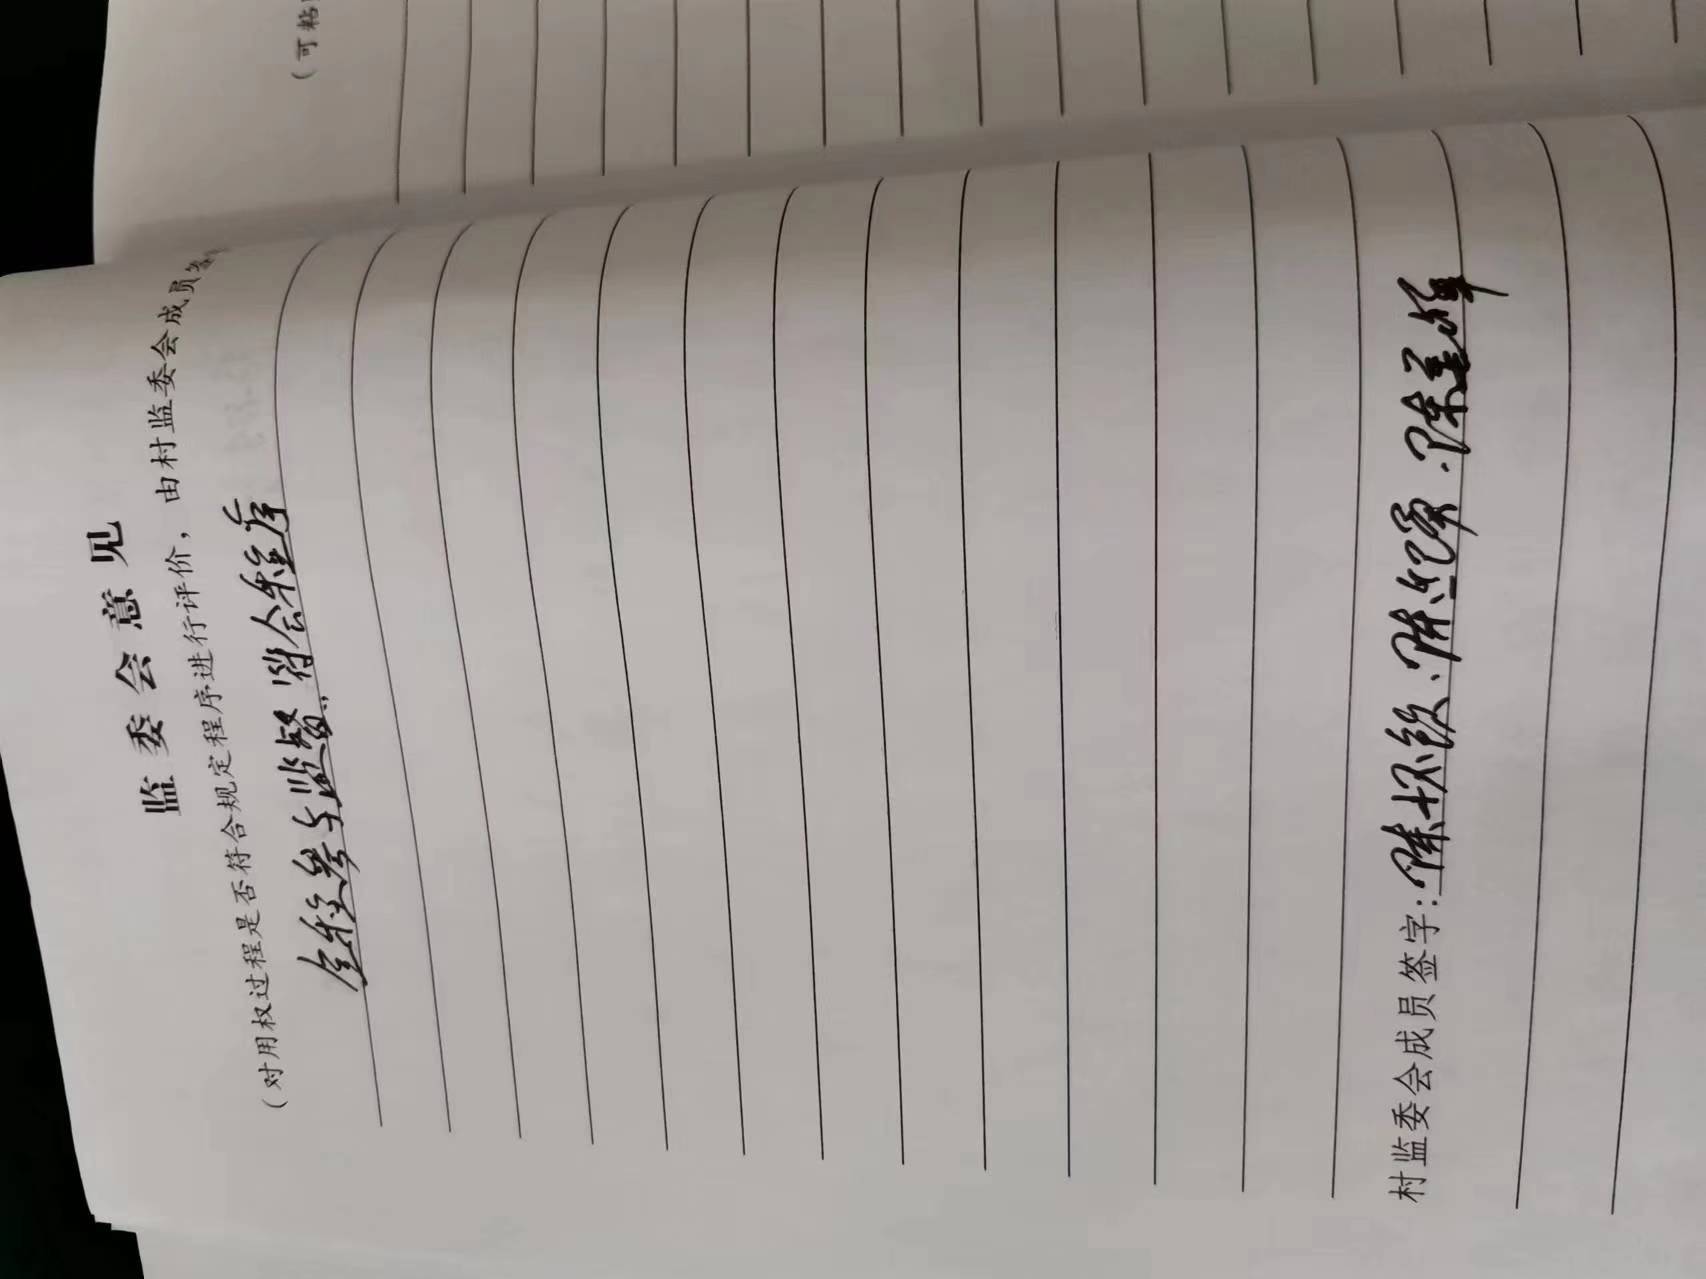 监委会意见
(对用权过程是否符合规定程序进行评价，由村监委会成员签
全程参与监督，符合程序
村监委会成员签字：陈怀钦、陈
(可粘